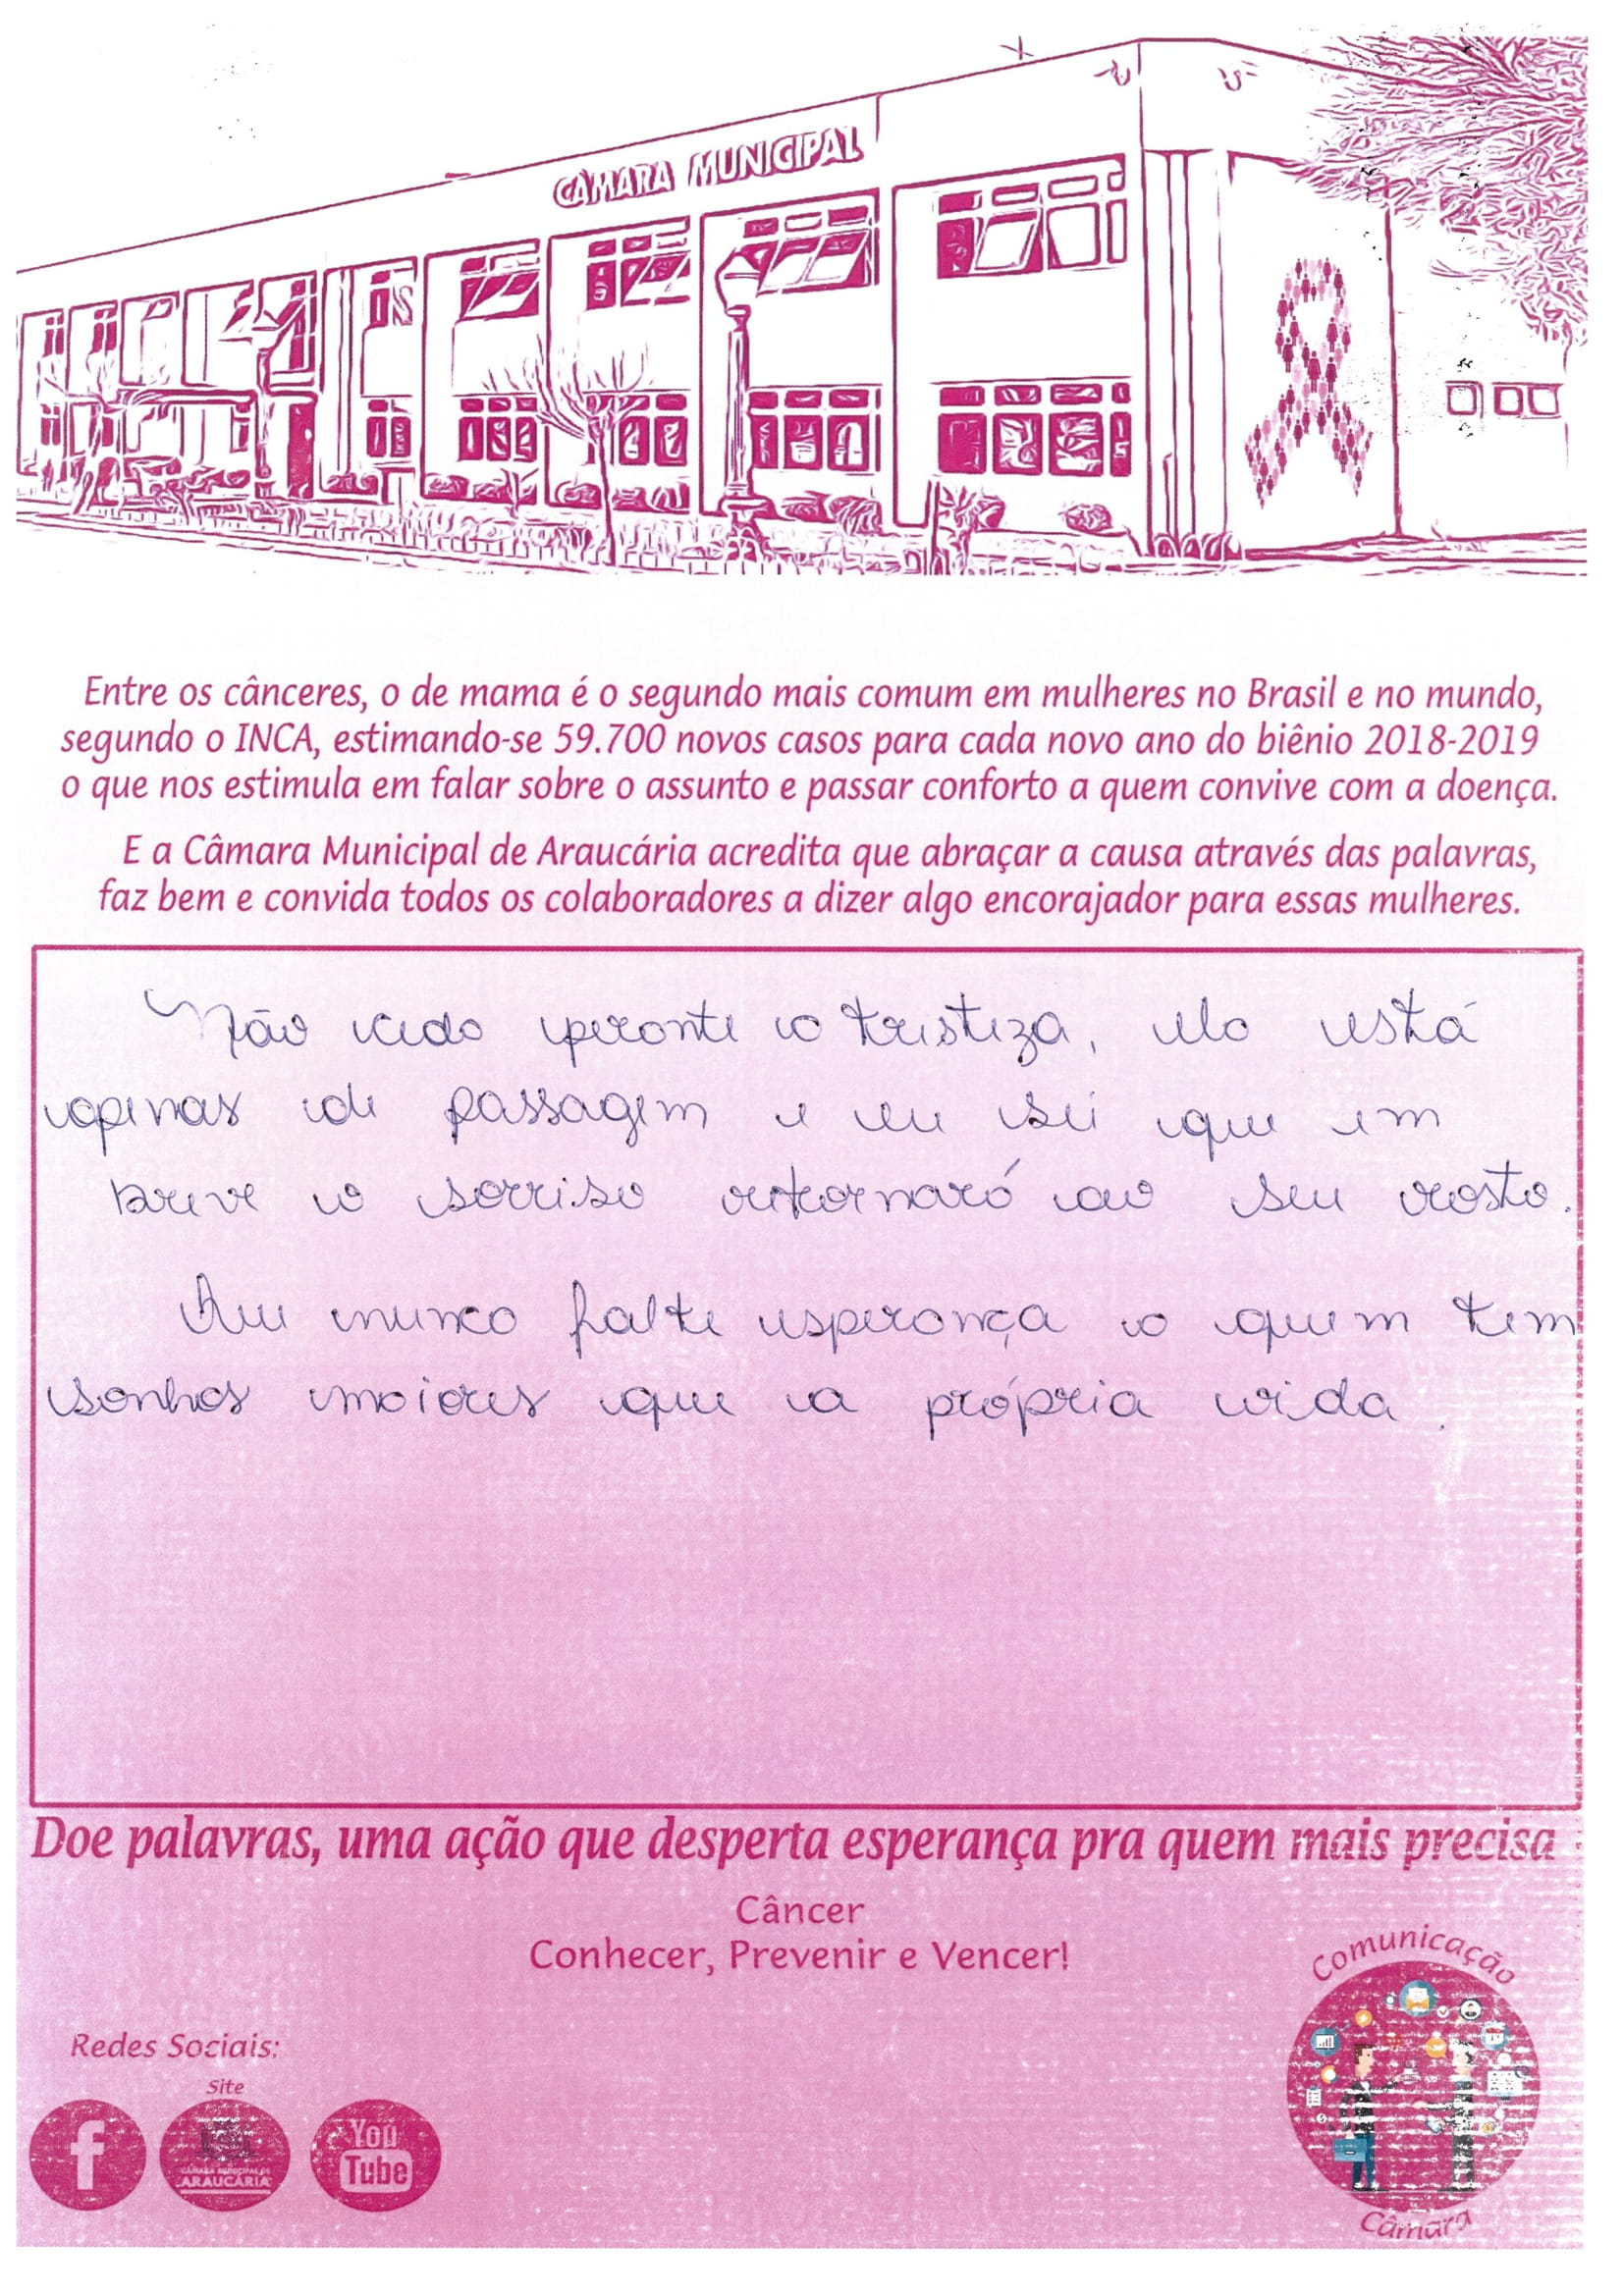 CÂMARA MUNICIPAL
Entre os cânceres, o de mama é o segundo mais comum em mulheres no Brasil e no mundo,
segundo o INCA, estimando-se 59.700 novos casos para cada novo ano do biênio 2018-2019
o que nos estimula em falar sobre o assunto e passar conforto a quem convive com a doença.
E a Câmara Municipal de Araucária acredita que abraçar a causa através das palavras,
faz bem e convida todos os colaboradores a dizer algo encorajador para essas mulheres.
Não ceda perante a tristeza, ela está
apenas de passagem e eu sei que em
breve o sorriso retornará ao seu rosto.
Que nunca falte esperança a quem tem
sonhos maiores que a própria vida.
Doe palavras, uma ação que desperta esperança pra quem mais precisa
Câncer
Conhecer, Prevenir e Vencer!
Comunicação
Redes Sociais:
Site
f
You
Tube
CÂMARA MUNICIPAL DE
ARAUCÁRIA
Câmara